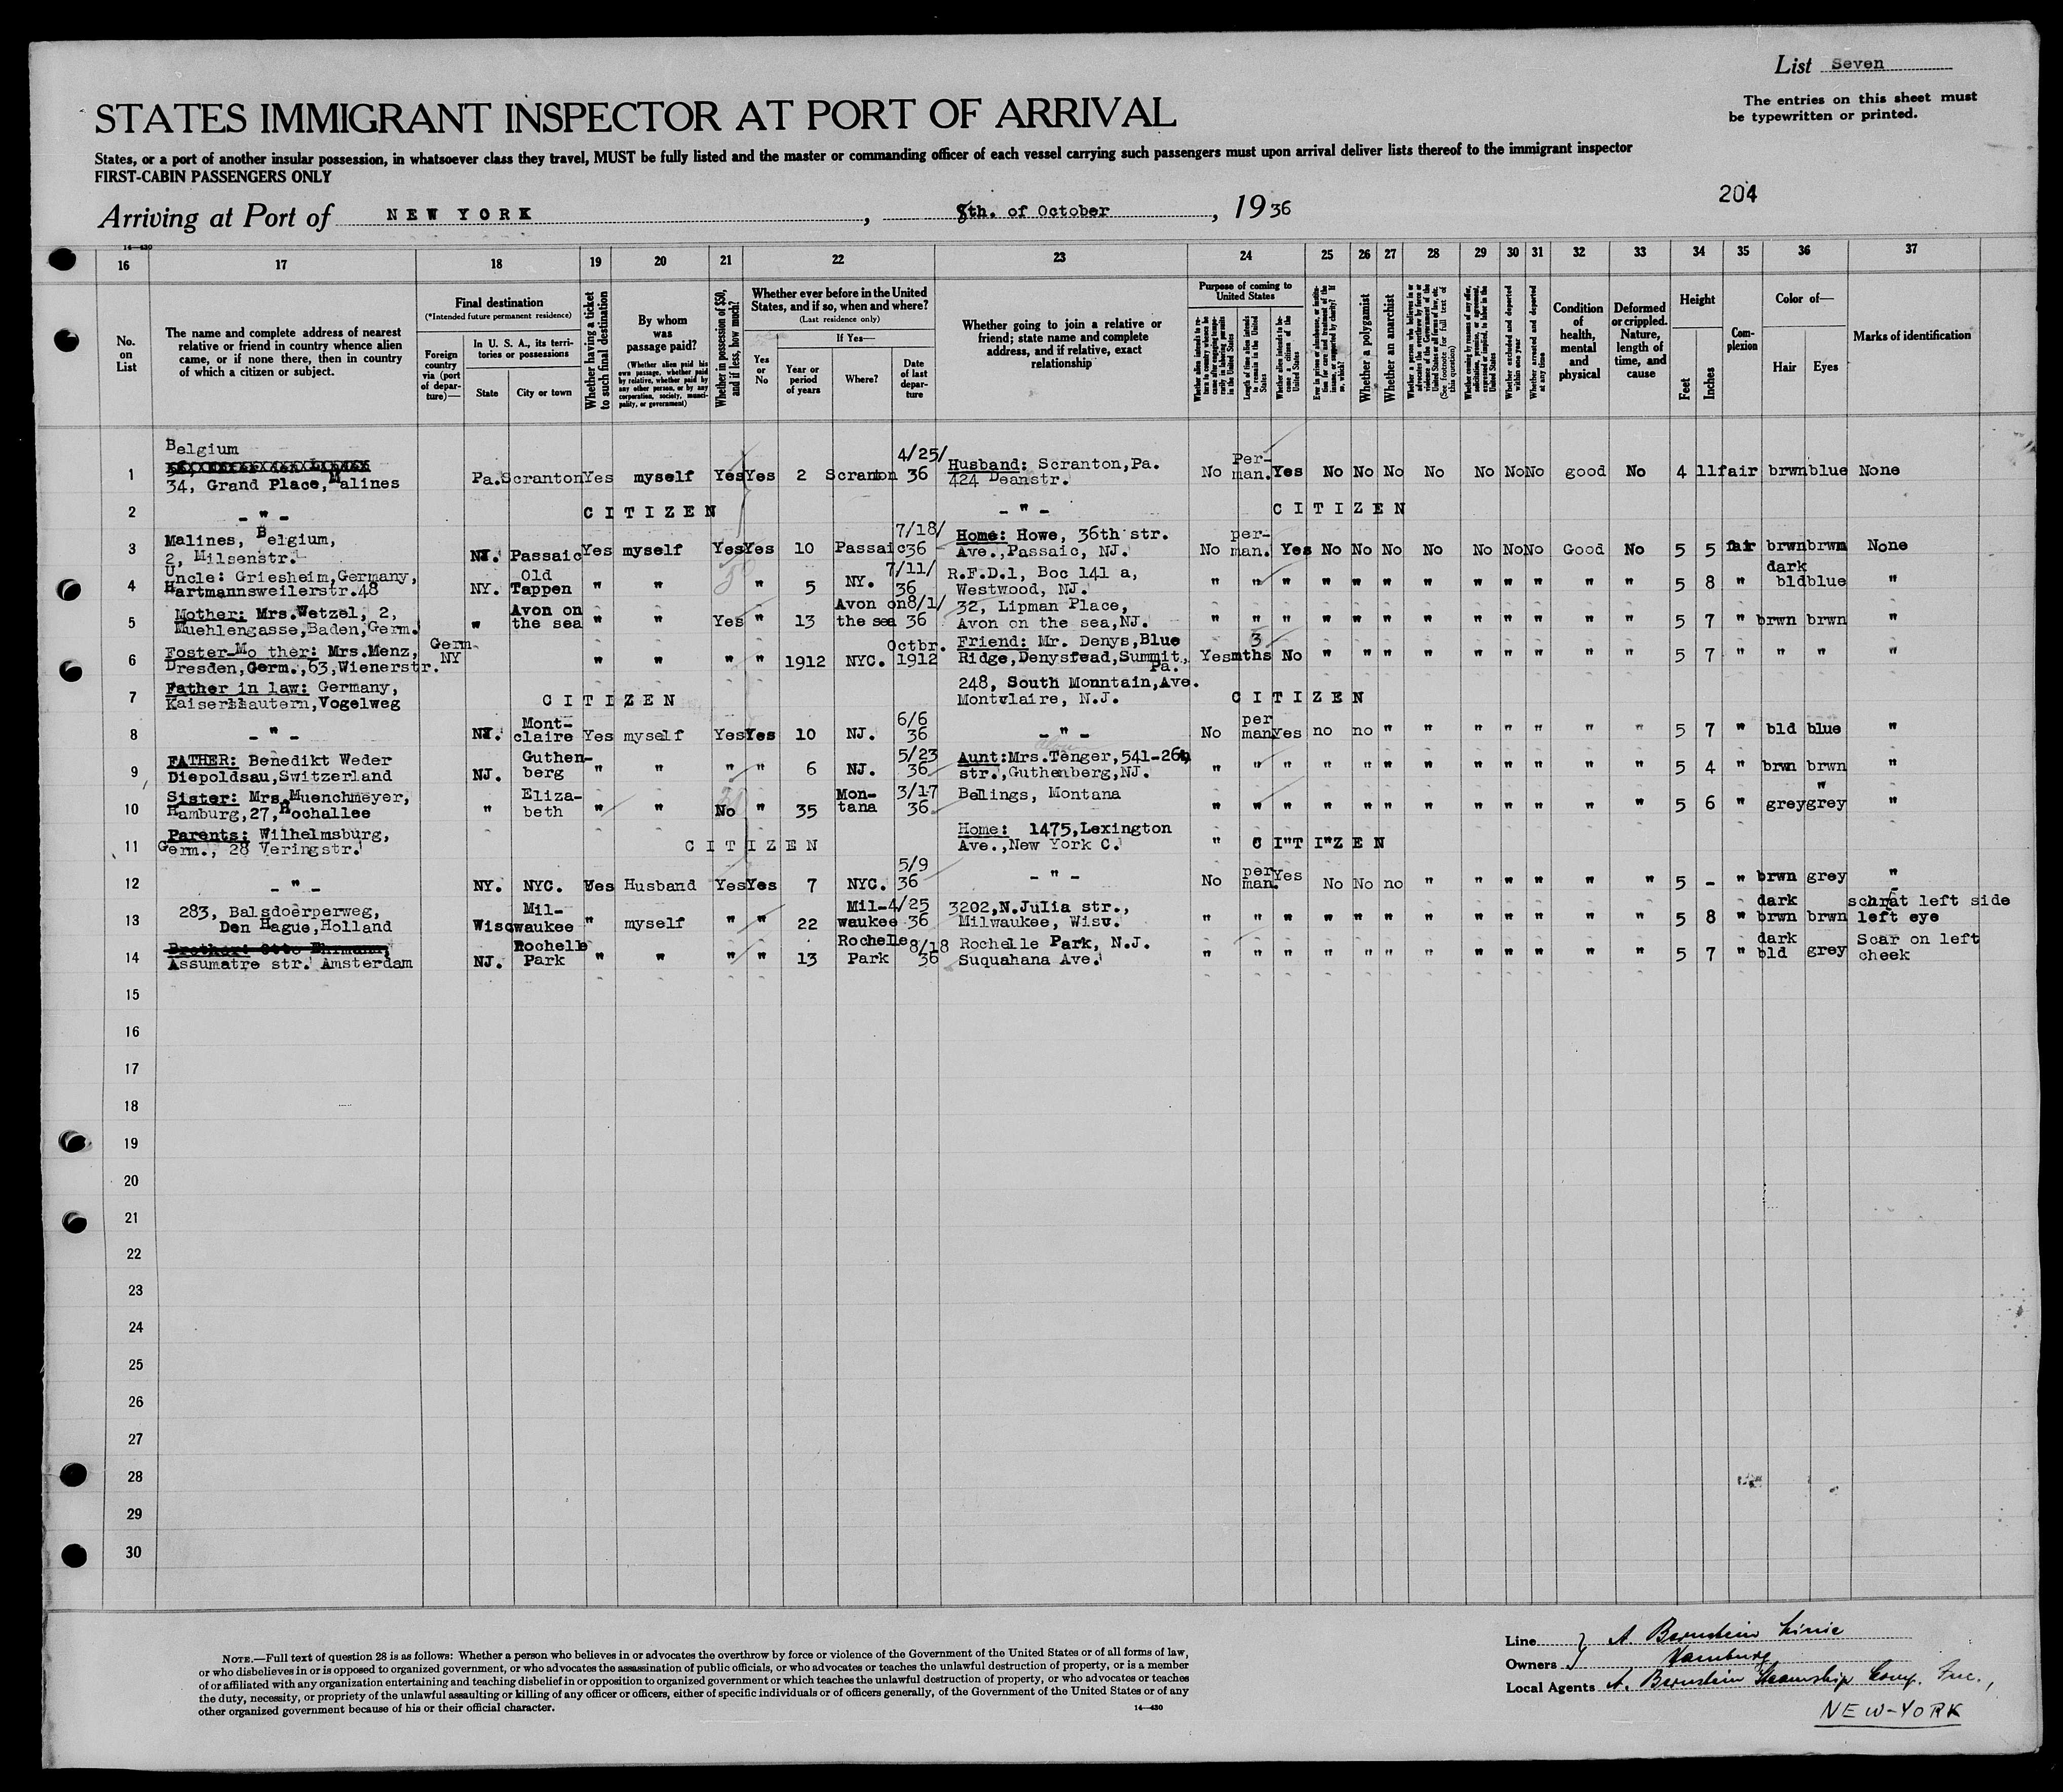 List Seven
The entries on this sheet must
be typewritten or printed.
STATES IMMIGRANT INSPECTOR AT PORT OF ARRIVAL
States, or a port of another insular possession, in whatsoever class they travel, MUST be fully listed and the master or commanding officer of each vessel carrying such passengers must upon arrival deliver lists thereof to the immigrant inspector
FIRST-CABIN PASSENGERS ONLY
204
Arriving at Port of NEW YORK, 8th. of October, 1936
14—430
16 17 18 19 20 21 22 23 24 25 26 27 28 29 30 31 32 33 34 35 36 37
No. on List
The name and complete address of nearest relative or friend in country whence alien came, or if none there, then in country of which a citizen or subject.
Final destination
(*Intended future permanent residence)
Foreign country via (port of departure)—
In U. S. A., its territories or possessions
State
City or town
Whether having a ticket to such final destination
By whom was passage paid?
(Whether alien paid his own passage, whether paid by relative, whether paid by any other person, or by any corporation, society, municipality, or government)
Whether in possession of $50, and if less, how much?
Whether ever before in the United States, and if so, when and where?
(Last residence only)
Yes or No
If Yes—
Year or period of years
Where?
Date of last departure
Whether going to join a relative or friend; state name and complete address, and if relative, exact relationship
Purpose of coming to United States
Length of time alien intends to remain in the United States
Whether alien intends to become a citizen of the United States
Whether a polygamist
Whether an anarchist
Whether excluded and deported within one year
Whether arrested and deported at any time
Condition of health, mental and physical
Deformed or crippled. Nature, length of time, and cause
Height
Feet
Inches
Complexion
Color of—
Hair
Eyes
Marks of identification
1 Belgium 34, Grand Place, Malines Pa. Scranton Yes myself Yes Yes 2 Scranton 4/25/36 Husband: Scranton,Pa. 424 Deanstr. No Per-man. Yes No No No No No No No good No 4 11 fair brwn blue None
2 - " - CITIZEN - " - CITIZEN
3 Malines, Belgium, 2, Milsenstr. NJ. Passaic Yes myself Yes Yes 10 Passaic 7/18/36 Home: Howe, 36th str. Ave.,Passaic, NJ. No per-man. Yes No No No No No No No Good No 5 5 fair brwn brwn None
4 Uncle: Griesheim,Germany, Hartmannsweilerstr.48 NY. Old Tappen " " " 5 NY. 7/11/36 R.F.D.1, Boc 141 a, Westwood, NJ. " " " " " " " " " " " " 5 8 " dark bld blue "
5 Mother: Mrs.Wetzel, 2, Muehlengasse,Baden,Germ. " Avon on the sea " " Yes " 13 Avon on the sea 8/1/36 32, Lipman Place, Avon on the sea,NJ. " " " " " " " " " " " " 5 7 " brwn brwn "
6 Foster-Mo ther: Mrs.Menz, Dresden,Germ.,63,Wienerstr. Germ. NY " " " " 1912 NYC. Octbr. 1912 Friend: Mr. Denys,Blue Ridge,Denystead,Summit, Pa. Yes 3 mths No " " " " " " " " " 5 7 " " " "
7 Father in law: Germany, Kaiserslautern,Vogelweg CITIZEN 248, South Mountain,Ave. Montclaire, N.J. CITIZEN
8 - " - NJ. Mont-claire Yes myself Yes Yes 10 NJ. 6/6 36 - " - No per man Yes no no " " " " " " " 5 7 " bld blue "
9 FATHER: Benedikt Weder Diepoldsau,Switzerland NJ. Guthen-berg " " " " 6 NJ. 5/23 36 Aunt:Mrs.Tenger,541-26th str.,Guthenberg,NJ. " " " " " " " " " " " " 5 4 " brwn brwn "
10 Sister: Mrs.Muenchmeyer, Hamburg,27,Hochallee " Eliza-beth " " No " 35 Mon-tana 3/17 36 Bellings, Montana " " " " " " " " " " " " 5 6 " grey grey "
11 Parents: Wilhelmsburg, Germ., 28 Veringstr. CITIZEN Home: 1475,Lexington Ave.,New York C. " CITIZEN
12 - " - NY. NYC. Yes Husband Yes Yes 7 NYC. 5/9 36 - " - No per man. Yes No No no " " " " " " 5 - " brwn grey "
13 283, Balsdoerperweg, Den Hague,Holland Wisc Mil-waukee " myself " " 22 Mil-waukee 4/25 36 3202,N.Julia str., Milwaukee, Wisc. " " " " " " " " " " " " 5 8 " dark brwn brwn left side left eye
14 Brother: Otto Ehrmann, Assumatre str. Amsterdam NJ. Rochelle Park " " " " 13 Rochelle Park 8/18 36 Rochelle Park, N.J. Suquahana Ave. " " " " " " " " " " " " 5 7 " dark bld grey Scar on left cheek
15
16
17
18
19
20
21
22
23
24
25
26
27
28
29
30
NOTE.—Full text of question 28 is as follows: Whether a person who believes in or advocates the overthrow by force or violence of the Government of the United States or of all forms of law,
or who disbelieves in or is opposed to organized government, or who advocates the assassination of public officials, or who advocates or teaches the unlawful destruction of property, or is a member
of or affiliated with any organization entertaining and teaching disbelief in or opposition to organized government or which teaches the unlawful destruction of property, or who advocates or teaches
the duty, necessity, or propriety of the unlawful assaulting or killing of any officer or officers, either of specific individuals or of officers generally, of the Government of the United States or of any
other organized government because of his or their official character.
14—430
Line A. Bernstein Linie
Owners Hamburg
Local Agents A. Bernstein Steamship Comp. Inc.,
NEW-YORK